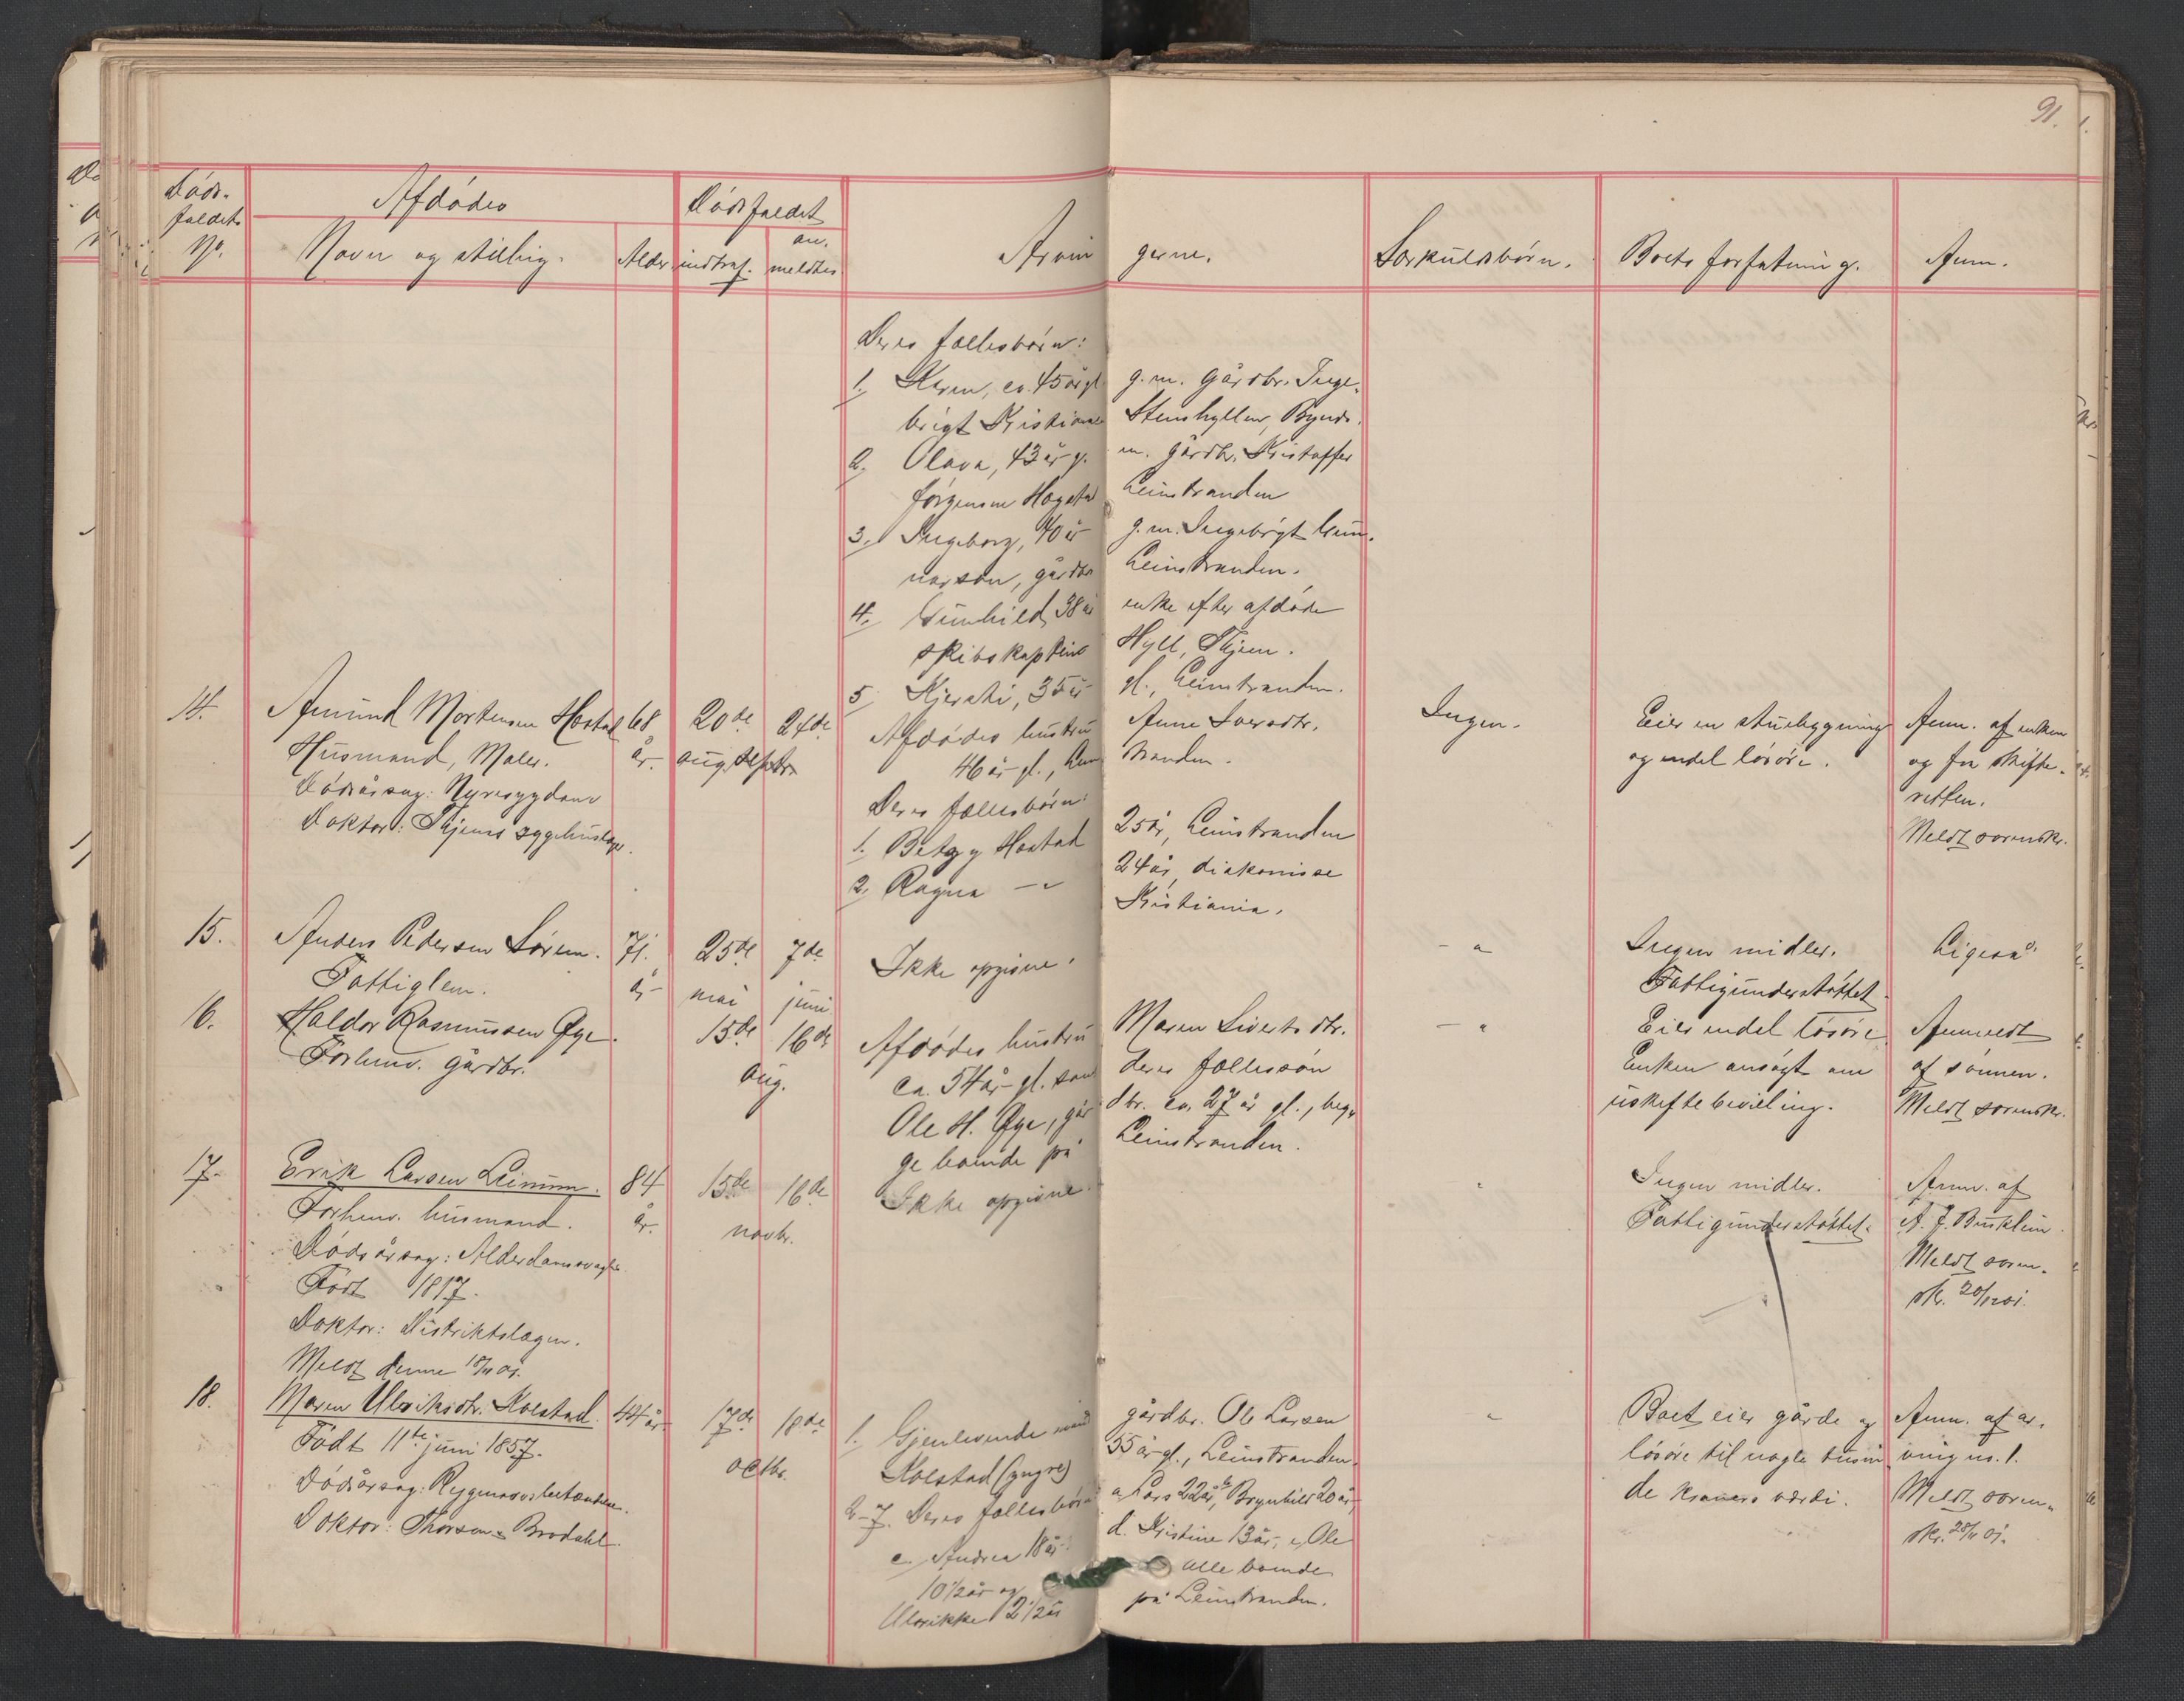 91.
Døds-
faldets
No.
Afdødes
Navn og stilling.
Alder.
Dødsfaldet
indtraf.
an-
meldtes.
Arvin gerne.
Særkuldsbørn.
Boets forfatning.
Anm.
Deres fællesbørn:
1. Karen, ca. 45 år gl. g. m. gårdbr. Inge-
brigt Kristiansen Stenshyllen, Bynes.
2. Olava, 43 år g. m. gårdbr. Kristoffer
Jørgensen Hogstad Leinstranden
3. Ingeborg, 40 år g. m. Ingebrigt Gun-
narson, gårdbr. Leinstranden.
4. Gunhild, 38 år enke efter afdøde
skibskaptein Hyll, Skjen.
5. Kjersti, 35 år gl., Leinstranden.
14. Amund Mortensen Hostad 68 20de 24de Afdødes hustru Anne Iversdtr. Ingen. Eier en stuebygning Anm. af enken
Husmand, Maler. år. aug. septbr. 46 år gl., Lein stranden. og endel løsøre. og for skifte-
Dødsårsag: Nyresygdom Deres fællesbørn: retten.
Doktor: Skjens sygehuslæge. 1. Betzy Hostad 25 år, Leinstranden Meldt sorenskr.
2. Ragna — " 24 år, diakonisse
Kristiania.
15. Anders Pedersen Sørem. 71. 25de 7de Ikke opgivne. — " Ingen midler. Ligeså.
Fattiglem. år mai juni Fattigunderstøttet.
16. Haldor Rasmussen Øye. 15de 16de Afdødes hustru Maren Sivertsdtr. — " Eier endel løsøre Anmeldt
Forhenv. gårdbr. aug. ca. 54 år gl. samt deres fællessøn Enken ansøgt om af sønnen.
Ole H. Øye, går dbr. ca. 27 år gl., beg- uskiftebevilling. Meldt sorenskr.
ge boende på Leinstranden.
17. Erik Larsen Leinum. 84 15de 16de Ikke opgivne. " Ingen midler. Anm. af
Forhenv. husmand. år. novbr. Fattigunderstøttet. A. J. Busklein
Dødsårsag: Alderdomssvaghed. Meldt soren-
Født 1817. skr. 20/12 01.
Doktor: Distriktslægen.
Meldt denne 18/11 01.
18. Maren Ulriksdtr. Kolstad. 44 år. 17de 18de 1. Gjenlevende mand gårdbr. Ole Larsen " Boet eier gårde og Anm. af ar-
Født 11te juni 1857. octbr. Kolstad (yngre) 55 år gl., Leinstranden. løsøre til nogle tusin- ving no. 1.
Dødsårsag: Rygmarvsbetændelse. 2-7. Deres fællesbørn: a, Lars 22 år, b, Brynhild 20 år, de kroners værdi. Meldt soren-
Doktor: Thorsen - Brodahl. c. Andrea 18 år d. Kristine 13 år, e, Ole skr. 28/11 01.
10 1/2 år og alle boende
Ulrikke 2 1/2 år på Leinstranden.